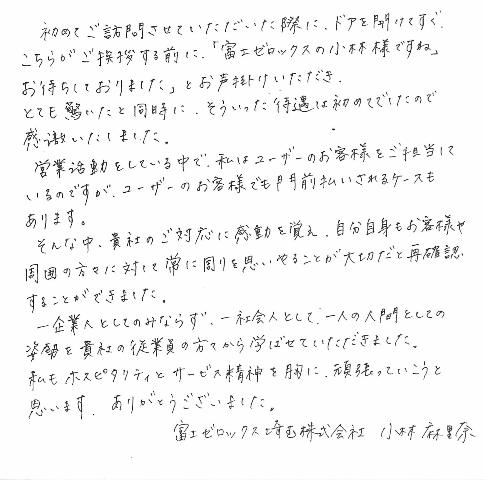 初めてご訪問させていただいた際に、ドアを開けてすぐ、
こちらがご挨拶する前に、「富士ゼロックスの小林様ですね」
お待ちしておりました」とお声掛けいただき、
とても驚いたと同時に、そういった待遇は初めてでしたので
感激いたしました。
営業活動をしている中で、私はユーザーのお客様をご担当して
いるのですが、ユーザーのお客様でも門前払いされるケースも
あります。
そんな中、貴社のご対応に感動を覚え、自分自身もお客様や
周囲の方々に対して常に周りを思いやることが大切だと再確認
することができました。
一企業人としてのみならず、一社会人として、一人の人間としての
姿勢を貴社の従業員の方々から学ばせていただきました。
私もホスピタリティとサービス精神を胸に、頑張っていこうと
思います。ありがとうございました。
富士ゼロックス埼玉株式会社 小林麻里奈